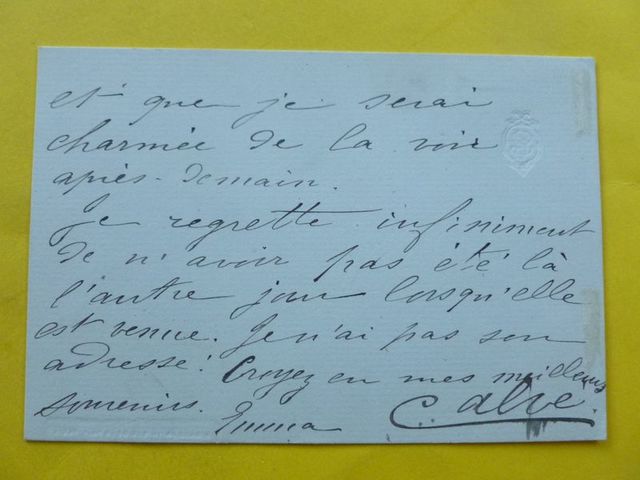 et que je serai
charmée de la voir
après-demain.
Je regrette infiniment
de n'avoir pas été là
l'autre jour lorsqu'elle
est venue. Je n'ai pas son
adresse! Croyez en mes meilleurs
souvenirs.
Emma Calvé.